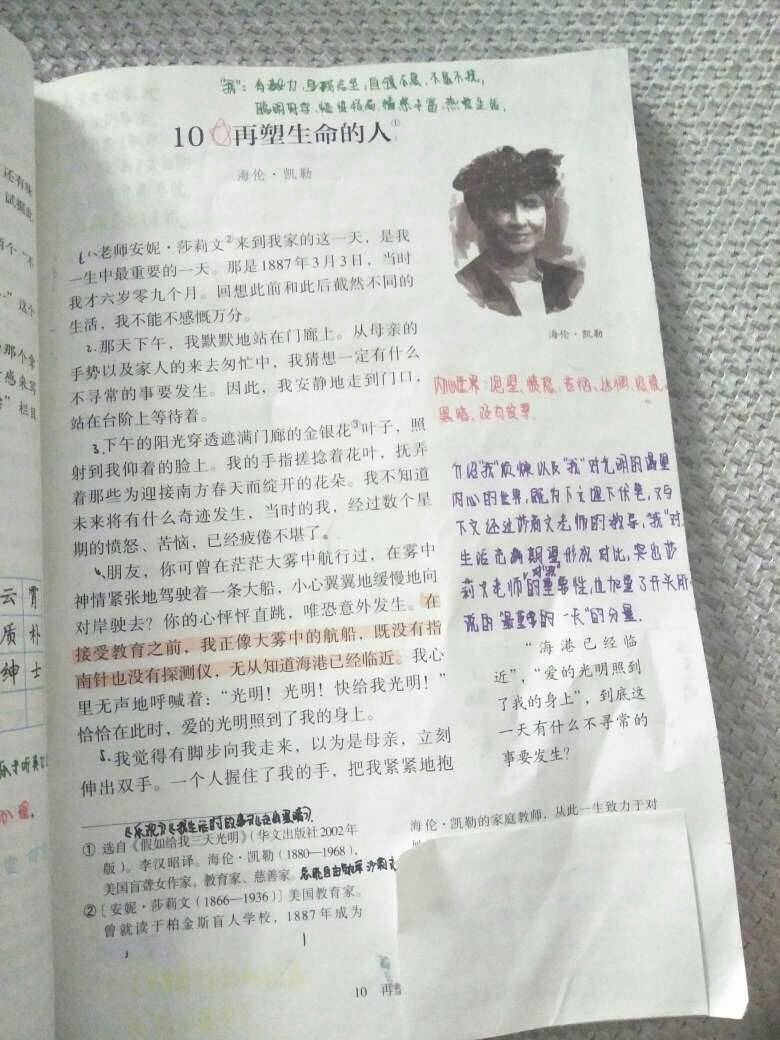 "我"：有毅力、身残志坚、自强不息、不屈不挠，
聪明好学、情感丰富、热爱生活。
10 再塑生命的人①
海伦·凯勒
1、老师安妮·莎莉文②来到我家的这一天，是我
一生中最重要的一天。那是1887年3月3日，当时
我才六岁零九个月。回想此前和此后截然不同的
生活，我不能不感慨万分。
2、那天下午，我默默地站在门廊上。从母亲的
手势以及家人的来去匆忙中，我猜想一定有什么
不寻常的事要发生。因此，我安静地走到门口，
站在台阶上等待着。
3、下午的阳光穿透遮满门廊的金银花③叶子，照
射到我仰着的脸上。我的手指搓捻着花叶，抚弄
着那些为迎接南方春天而绽开的花朵。我不知道
未来将有什么奇迹发生，当时的我，经过数个星
期的愤怒、苦恼，已经疲倦不堪了。
4、朋友，你可曾在茫茫大雾中航行过，在雾中
神情紧张地驾驶着一条大船，小心翼翼地缓慢地向
对岸驶去？你的心怦怦直跳，唯恐意外发生。在
接受教育之前，我正像大雾中的航船，既没有指
南针也没有探测仪，无从知道海港已经临近。我心
里无声地呼喊着："光明！光明！快给我光明！"
恰恰在此时，爱的光明照到了我的身上。
5、我觉得有脚步向我走来，以为是母亲，立刻
伸出双手。一个人握住了我的手，把我紧紧地抱
海伦·凯勒
内心世界：绝望、愤怒、苦恼、疲倦
黑暗、没有故事
介绍"我"烦躁以及"我"对光明的渴望
内心的世界，既为下文埋下伏笔，又与
下文还过莎莉文老师的教导，"我"对
生活充满期望形成对比，突出莎
莉文老师"对'我'的重要性，也加重了开头所
说的"最重要的一天"的分量。
"海港已经临
近"，"爱的光明照到
了我的身上"，到底这
一天有什么不寻常的
事要发生？
① 选自《假如给我三天光明》(华文出版社2002年
版)。李汉昭译。海伦·凯勒（1880—1968），
美国盲聋女作家，教育家、慈善家。
② [安妮·莎莉文（1866—1936）] 美国教育家。
曾就读于柏金斯盲人学校，1887年成为
海伦·凯勒的家庭教师，从此一生致力于对
10 再
还有味
试据此
个"不
"这个
那个拿
感来写
栏目
云 霄
质 朴
绅 士